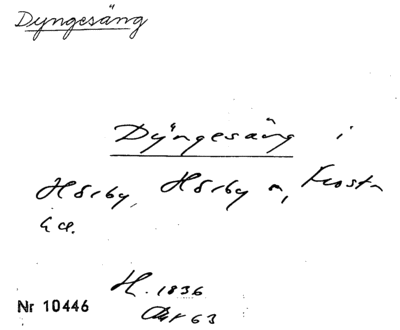 Dyngesäng
Dyngesäng i
Hörby, Hörby sn, Frosta
hd.
H. 1836
Akt 63
Nr 10446